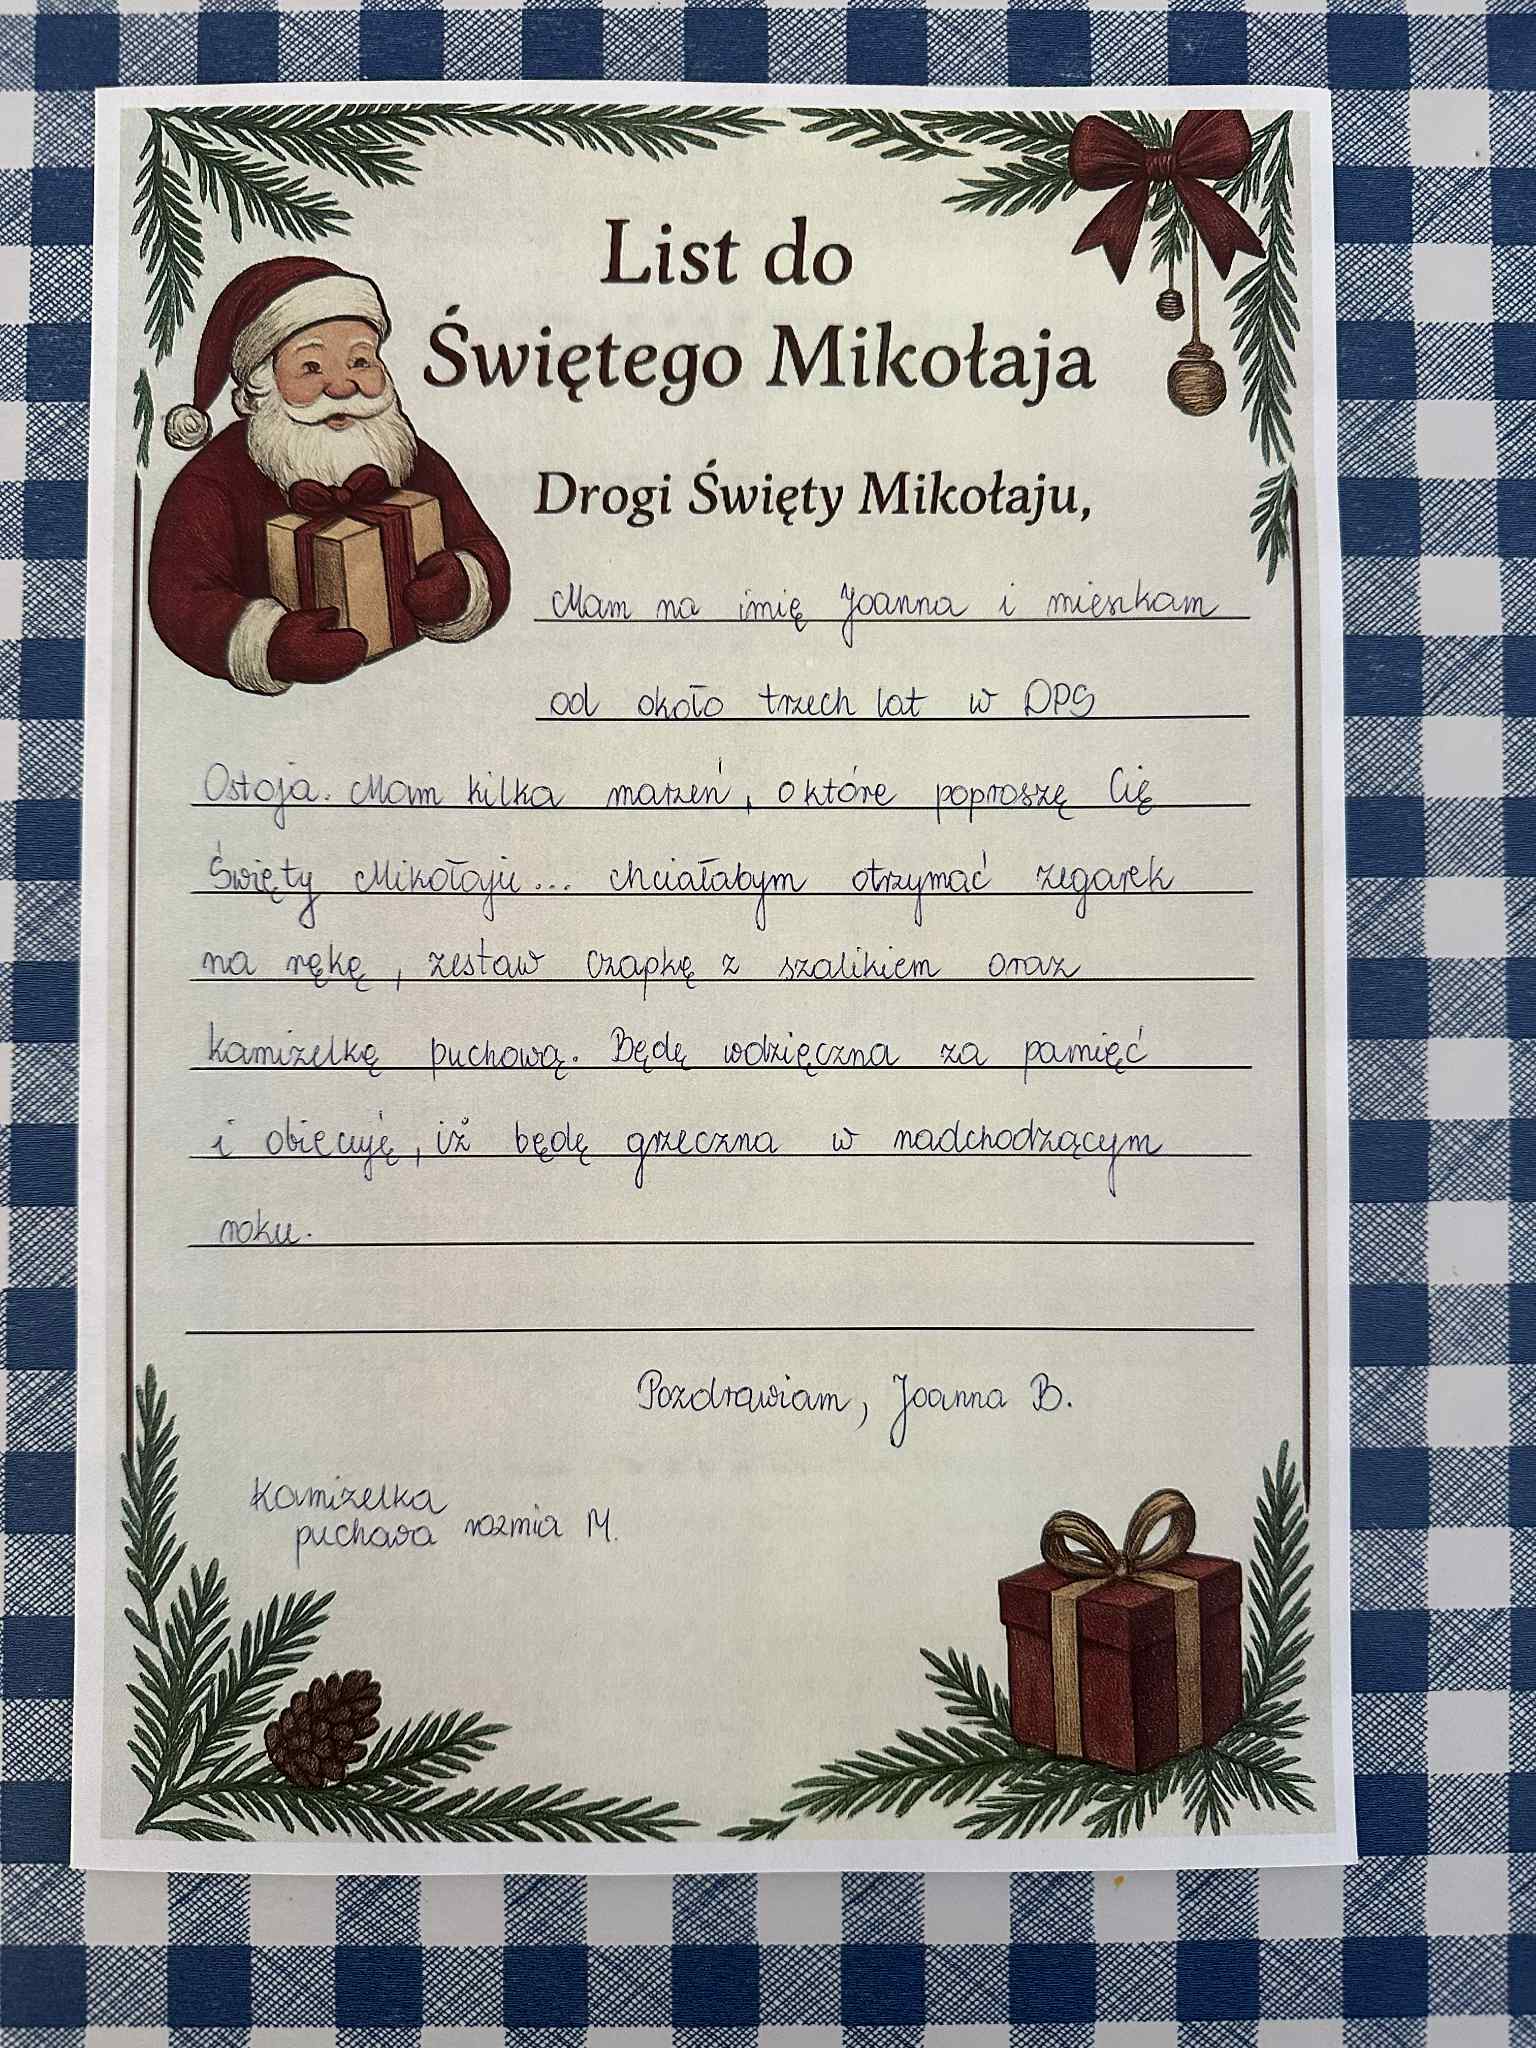 List do
Świętego Mikołaja
Drogi Święty Mikołaju,
Mam na imię Joanna i mieszkam
od około trzech lat w DPS
Ostoja. Mam kilka marzeń, o które poproszę Cię
Święty Mikołaju... chciałabym otrzymać zegarek
na rękę, zestaw czapkę z szalikiem oraz
kamizelkę puchową. Będę wdzięczna za pamięć
i obiecuję, iż będę grzeczna w nadchodzącym
roku.
Pozdrawiam, Joanna B.
Kamizelka
puchowa rozmia M.